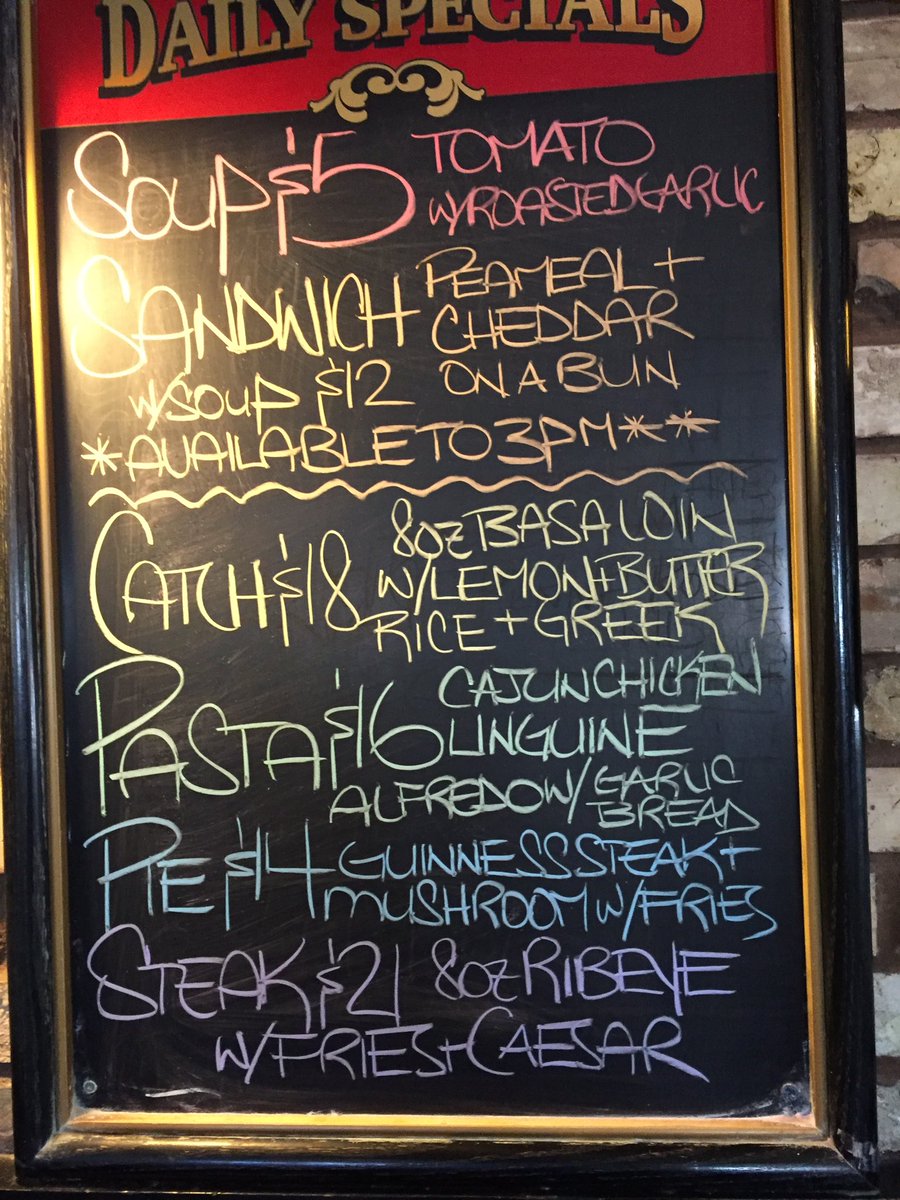 DAILY SPECIALS
SOUP $5 TOMATO
W/ROASTED GARLIC
SANDWICH PEAMEAL +
CHEDDAR
W/SOUP $12 ON A BUN
*AVAILABLE TO 3PM**
CATCH $18 8oz BASA LOIN
W/LEMON+BUTTER
RICE + GREEK
PASTA $16 CAJUN CHICKEN
LINGUINE
ALFREDO W/ GARLIC
BREAD
PIE $14 GUINNESS STEAK +
MUSHROOM W/FRIES
STEAK $21 8oz RIBEYE
W/FRIES+CAESAR